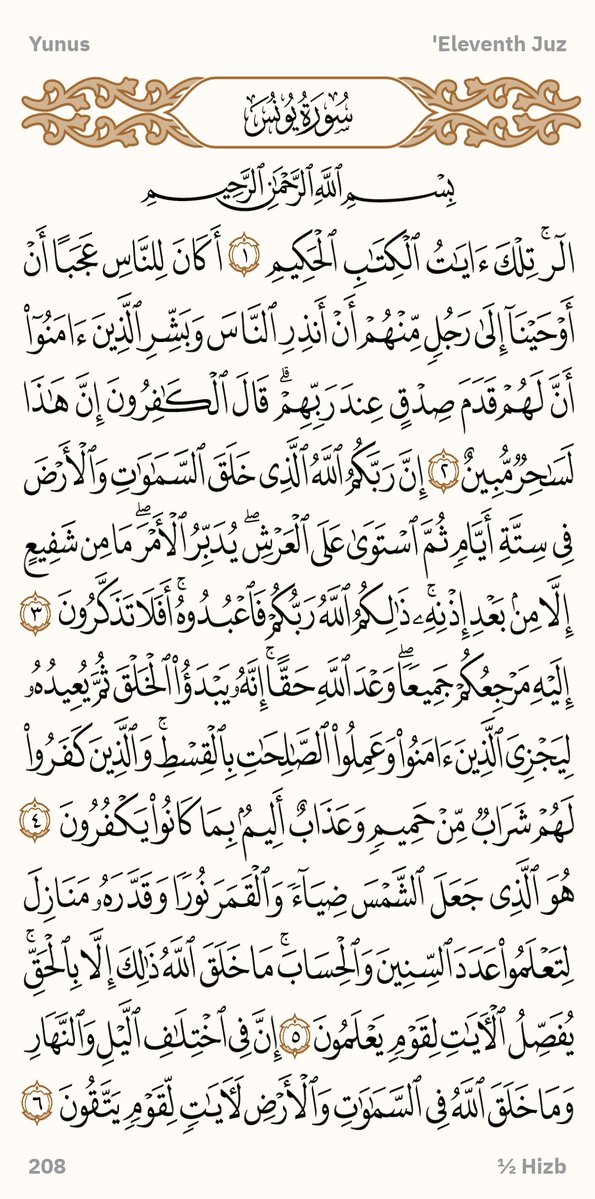 Yunus 'Eleventh Juz
سُورَةُ يُونُسَ
بِسْمِ ٱللَّهِ ٱلرَّحْمَٰنِ ٱلرَّحِيمِ
الٓر ۚ تِلْكَ ءَايَٰتُ ٱلْكِتَٰبِ ٱلْحَكِيمِ ١ أَكَانَ لِلنَّاسِ عَجَبًا أَنْ
أَوْحَيْنَآ إِلَىٰ رَجُلٍ مِّنْهُمْ أَنْ أَنذِرِ ٱلنَّاسَ وَبَشِّرِ ٱلَّذِينَ ءَامَنُوٓا۟
أَنَّ لَهُمْ قَدَمَ صِدْقٍ عِندَ رَبِّهِمْ ۗ قَالَ ٱلْكَٰفِرُونَ إِنَّ هَٰذَا
لَسَٰحِرٌ مُّبِينٌ ٢ إِنَّ رَبَّكُمُ ٱللَّهُ ٱلَّذِى خَلَقَ ٱلسَّمَٰوَٰتِ وَٱلْأَرْضَ
فِى سِتَّةِ أَيَّامٍ ثُمَّ ٱسْتَوَىٰ عَلَى ٱلْعَرْشِ ۖ يُدَبِّرُ ٱلْأَمْرَ ۖ مَا مِن شَفِيعٍ
إِلَّا مِنۢ بَعْدِ إِذْنِهِۦ ۚ ذَٰلِكُمُ ٱللَّهُ رَبُّكُمْ فَٱعْبُدُوهُ ۚ أَفَلَا تَذَكَّرُونَ ٣
إِلَيْهِ مَرْجِعُكُمْ جَمِيعًا ۖ وَعْدَ ٱللَّهِ حَقًّا ۚ إِنَّهُۥ يَبْدَؤُا۟ ٱلْخَلْقَ ثُمَّ يُعِيدُهُۥ
لِيَجْزِىَ ٱلَّذِينَ ءَامَنُوا۟ وَعَمِلُوا۟ ٱلصَّٰلِحَٰتِ بِٱلْقِسْطِ ۚ وَٱلَّذِينَ كَفَرُوا۟
لَهُمْ شَرَابٌ مِّنْ حَمِيمٍ وَعَذَابٌ أَلِيمٌۢ بِمَا كَانُوا۟ يَكْفُرُونَ ٤
هُوَ ٱلَّذِى جَعَلَ ٱلشَّمْسَ ضِيَآءً وَٱلْقَمَرَ نُورًا وَقَدَّرَهُۥ مَنَازِلَ
لِتَعْلَمُوا۟ عَدَدَ ٱلسِّنِينَ وَٱلْحِسَابَ ۚ مَا خَلَقَ ٱللَّهُ ذَٰلِكَ إِلَّا بِٱلْحَقِّ ۚ
يُفَصِّلُ ٱلْءَايَٰتِ لِقَوْمٍ يَعْلَمُونَ ٥ إِنَّ فِى ٱخْتِلَٰفِ ٱلَّيْلِ وَٱلنَّهَارِ
وَمَا خَلَقَ ٱللَّهُ فِى ٱلسَّمَٰوَٰتِ وَٱلْأَرْضِ لَءَايَٰتٍ لِّقَوْمٍ يَتَّقُونَ ٦
208 ½ Hizb